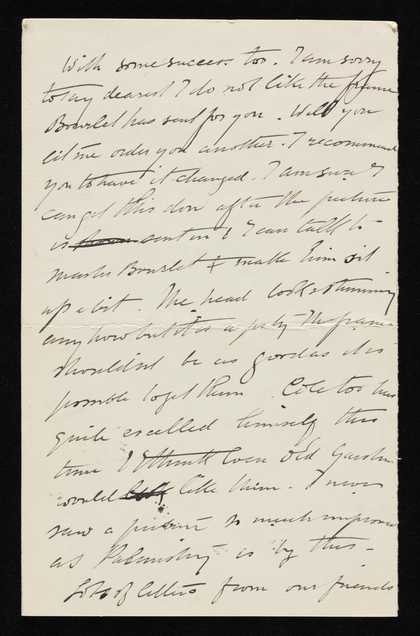 With some success too. I am sorry
to say dearest I do not like the frame
Bourlet has sent for you. Will you
let me order you another. I recommend
you to have it changed. I am sure I
can get this done after the picture
is sent in & I can talk to
master Bourlet & make him sit
up a bit. The head looks stunning
anyhow but it is a pity the frame
shouldn't be as good as it is
possible to get them. Cole too has
quite excelled himself this
time I think Even Old
would like them. I never
saw a picture so much improved
as Palmistry is by this -
Lots of letters from our friends